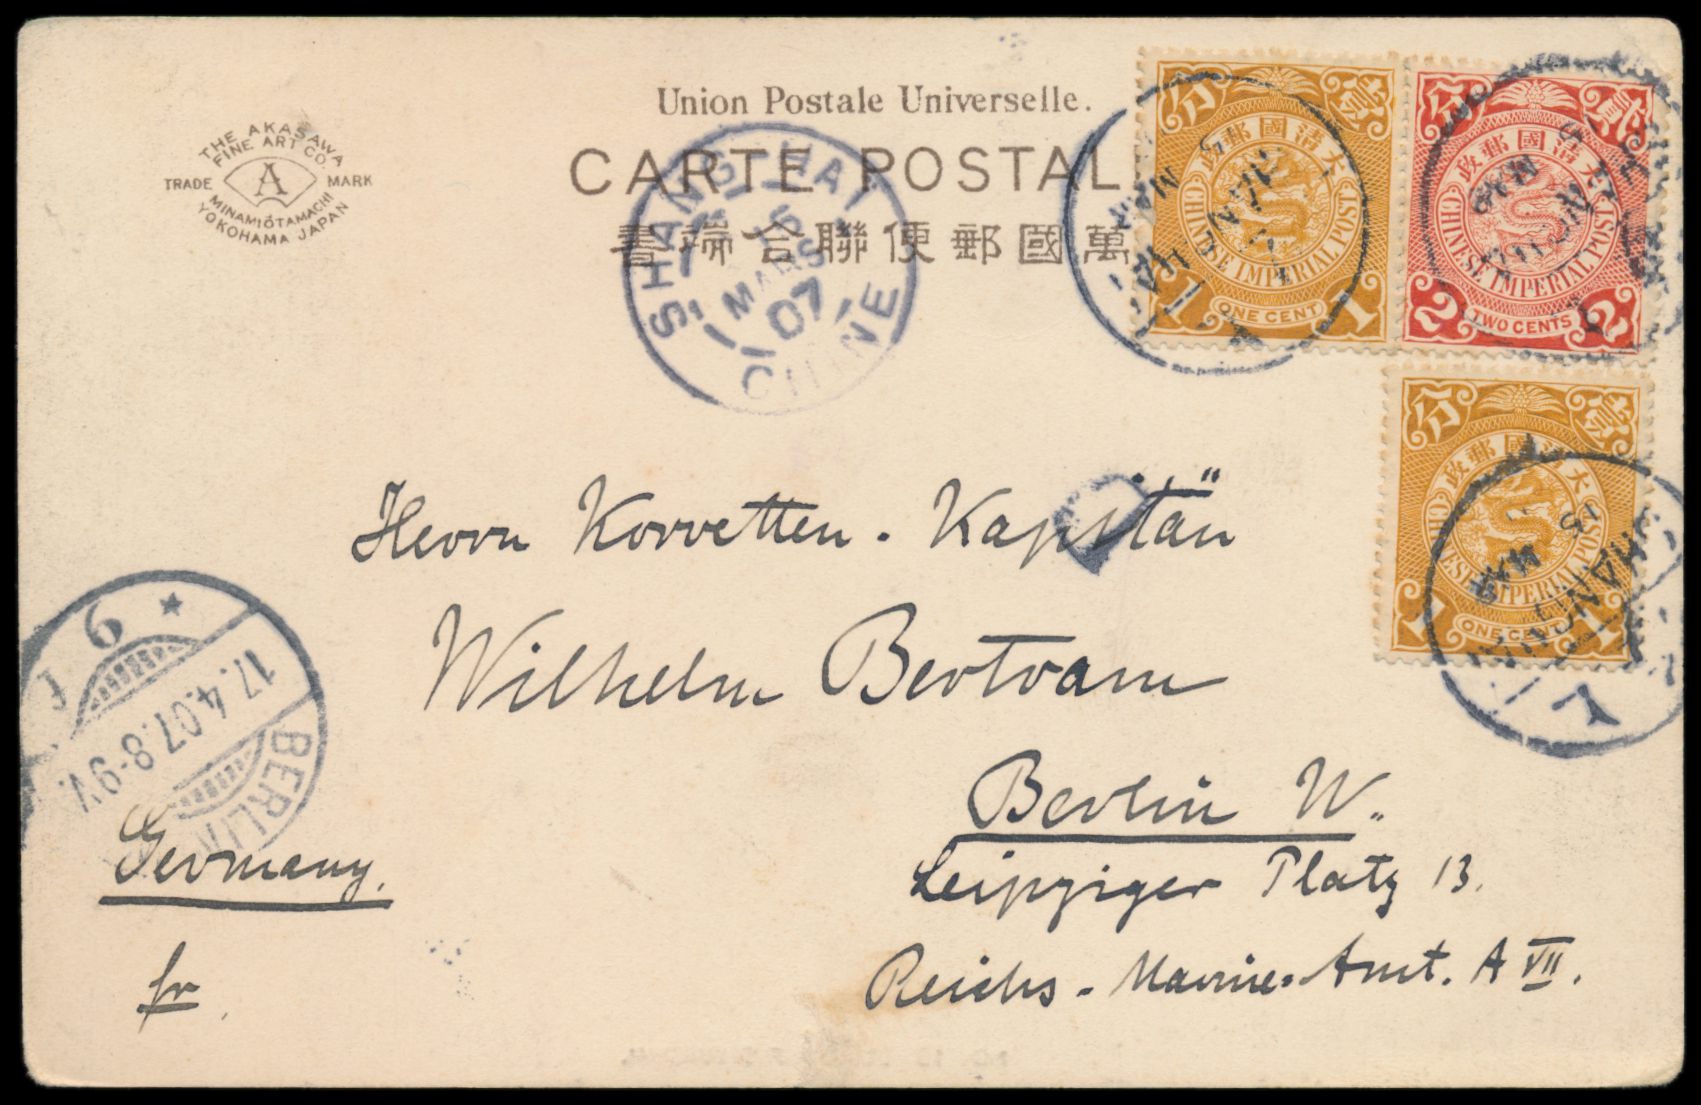 Union Postale Universelle.
CARTE POSTAL
萬國郵便聯合端書
THE AKASAWA
FINE ART CO.
A
TRADE MARK
MINAMIŌTAMACHI
YOKOHAMA JAPAN
SHANG-HAI
15
MARS
07
CHINE
大清國郵政
分 壹
CHINESE IMPERIAL POST
1 ONE CENT 1
大清國郵政
分 貳
CHINESE IMPERIAL POST
2 TWO CENTS 2
大清國郵政
分 壹
CHINESE IMPERIAL POST
1 ONE CENT 1
Herrn Korvetten-Kapitän
Wilhelm Bertram
Berlin W.
Leipziger Platz 13.
Reichs-Marine-Amt. A VII.
BERLIN
17.4.07.8-9V.
Germany.
fr.